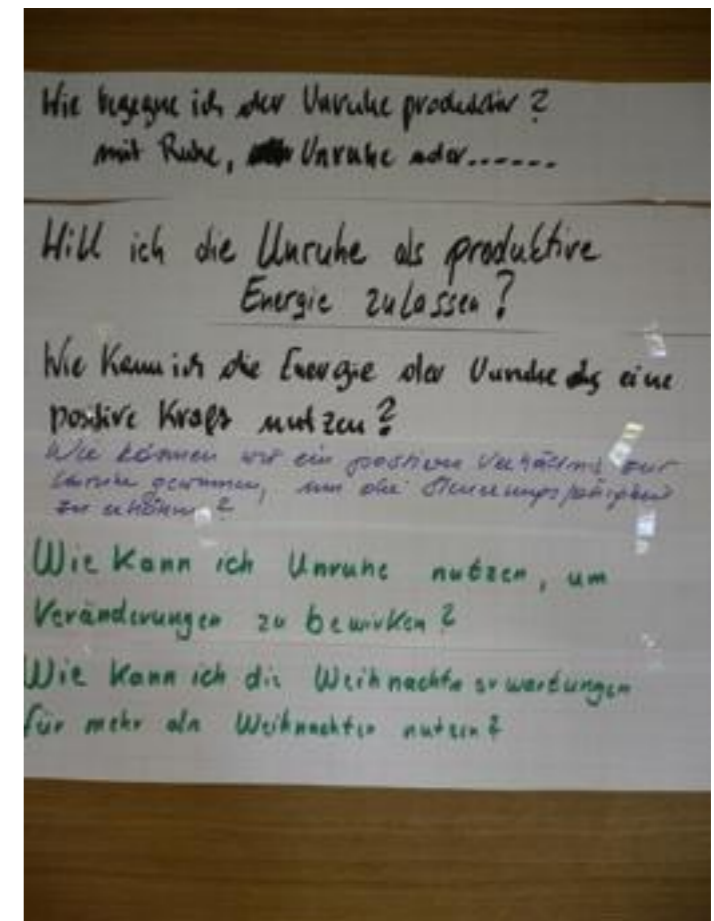 Wie begegne ich der Unruhe produktiv?
mit Ruhe, Unruhe oder......
Will ich die Unruhe als produktive
Energie zulassen?
Wie kann ich die Energie der Unruhe als eine
positive Kraft nutzen?
Wie können wir ein positives Verhältnis zur
Unruhe gewinnen, um die Steuerungsfähigkeit
zu erhöhen?
Wie kann ich Unruhe nutzen, um
Veränderungen zu bewirken?
Wie kann ich die Weihnachtserwartungen
für mehr als Weihnachten nutzen?